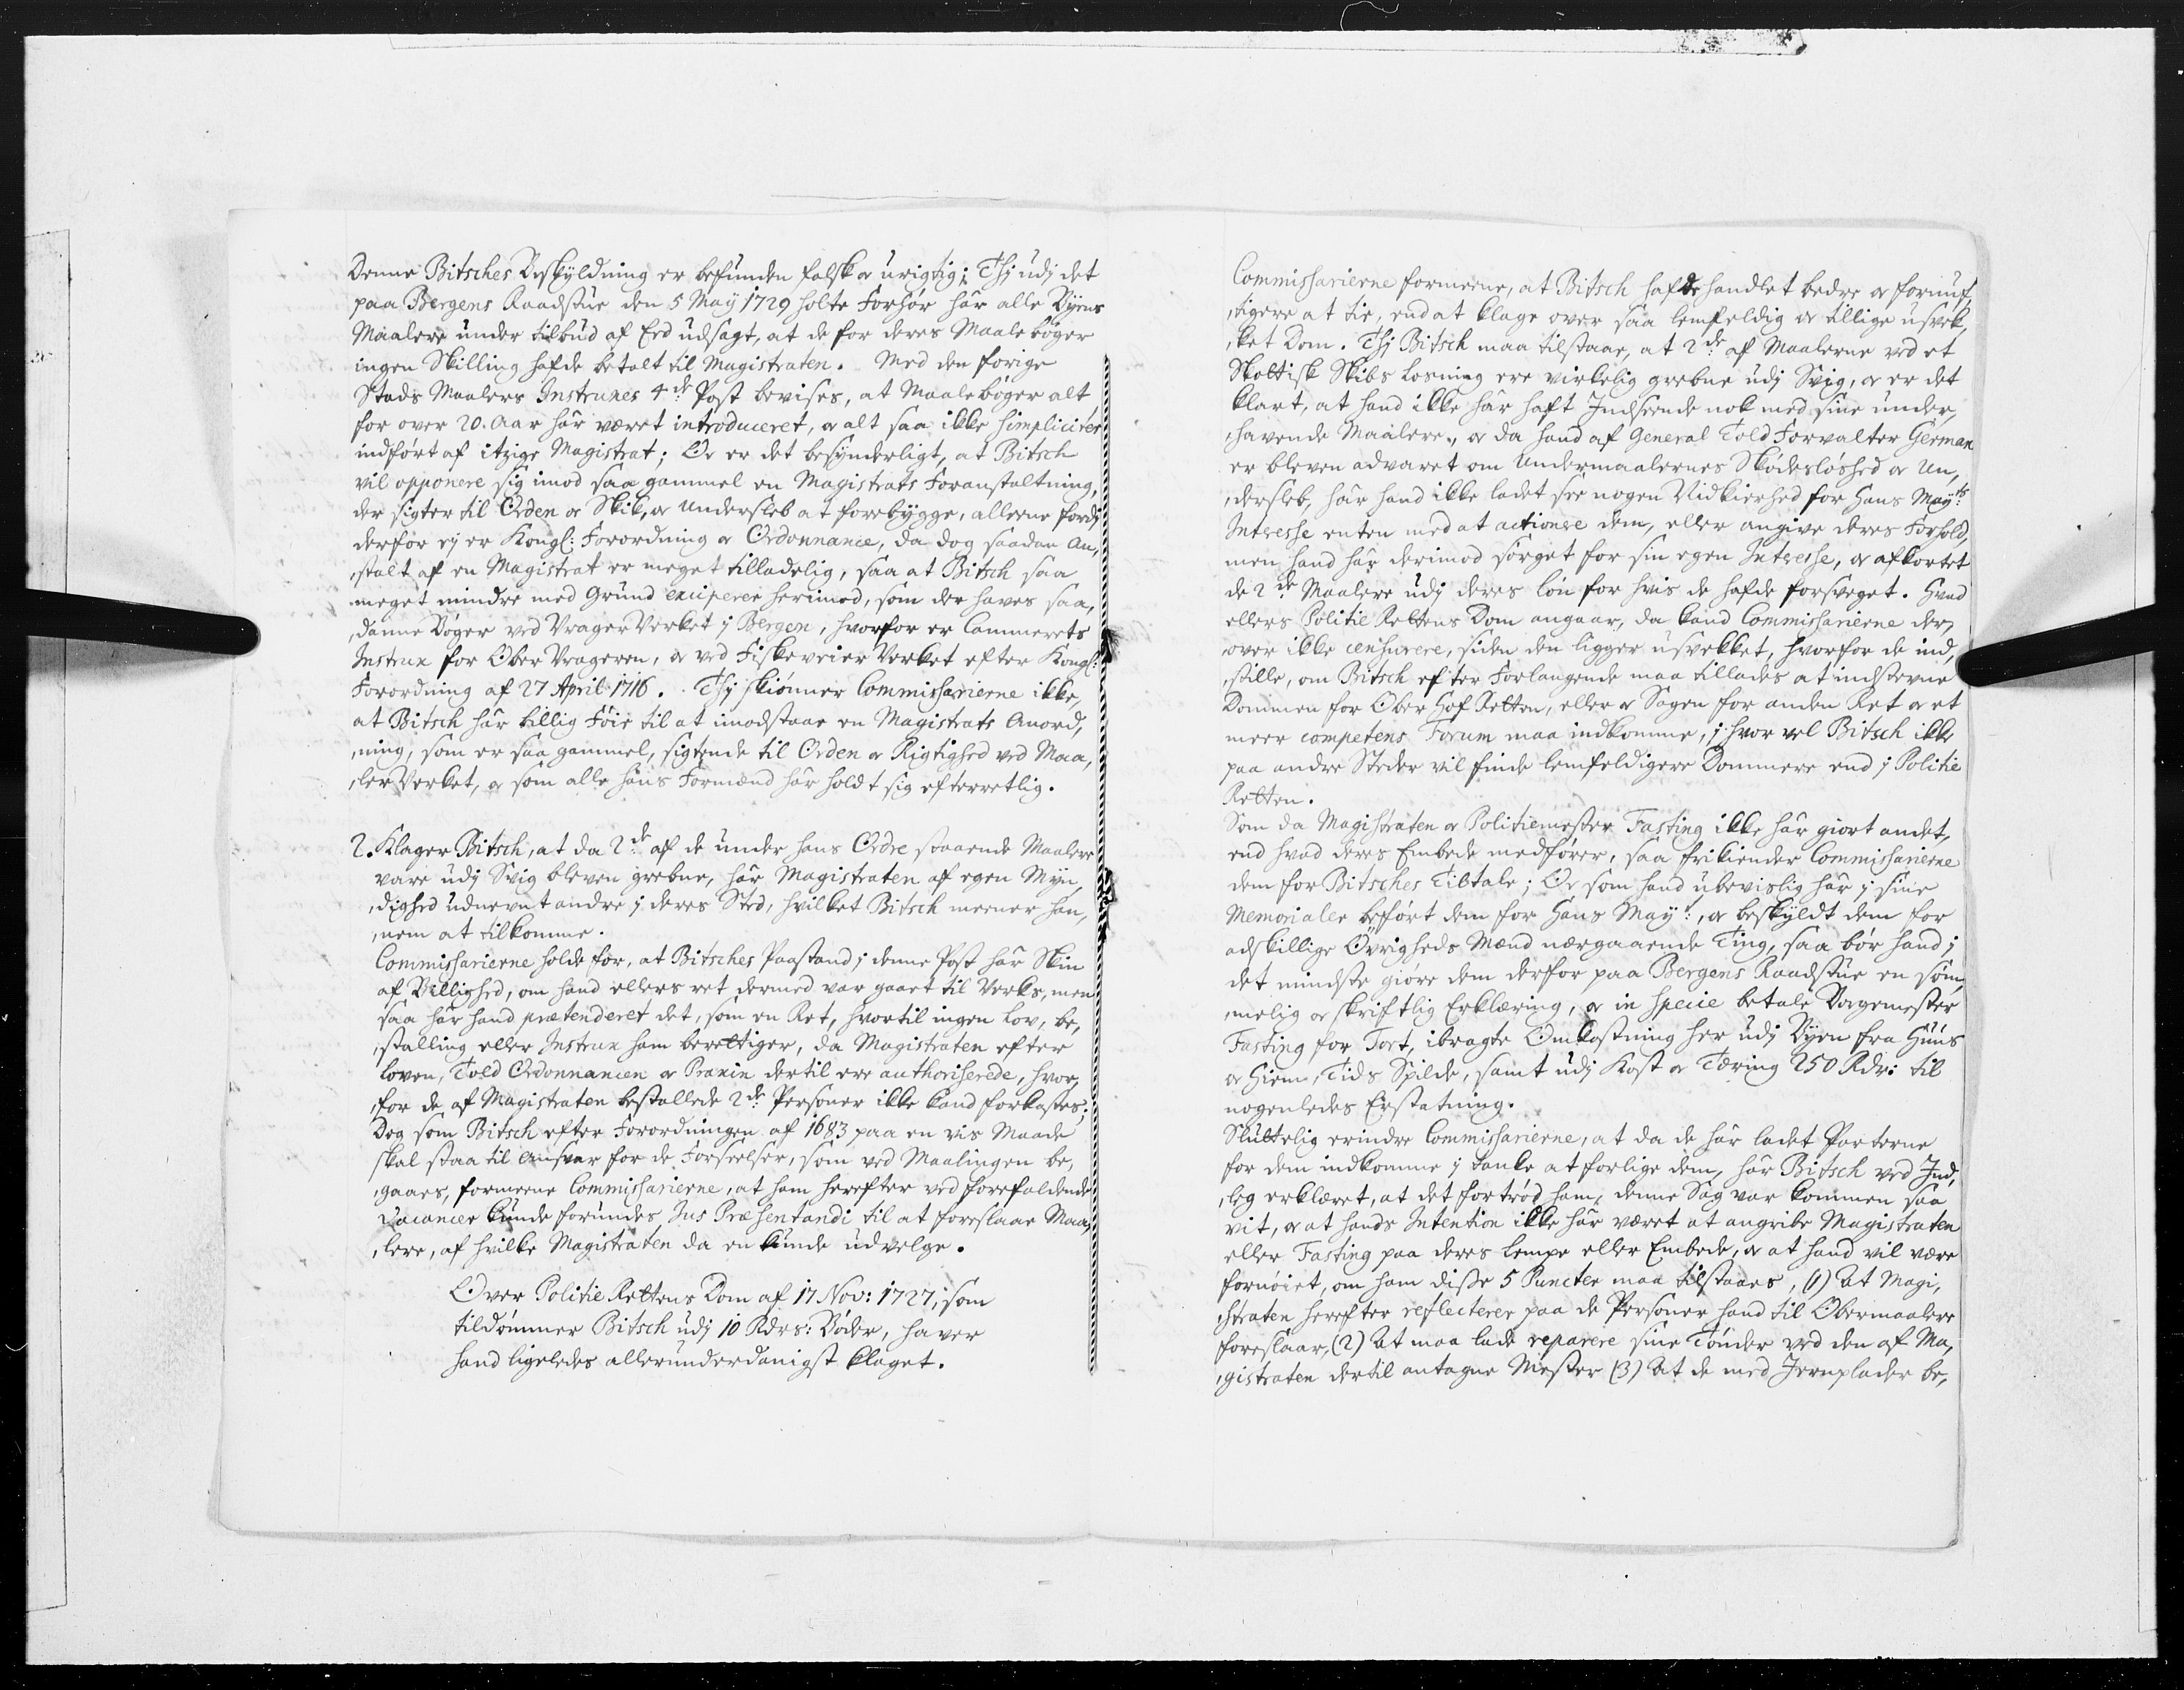 Denne Bitsches Beskyldning er befunden falsk og urigtig; Thj udj det
paa Bergens Raadstue den 5 Maÿ 1729 holte Forhør har alle Byens
Maalere under tilbud af Eed udsagt, at de for deres Maale bøger
ingen Skilling hafde betalt til Magistraten. Med den forige
Stads Maalers Instruxes 4de Post bevises, at Maalebøger alt
for over 20. Aar har været introduceret, og alt saa ikke simpliciter
indført af itzige Magistrat; Og er det besynderligt, at Bitsch
vil opponere sig imod saa gammel en Magistrats Foranstaltning,
der sigter til Orden og Skik, og Undersleb at forebygge, alleene fordj
derfor ej er Kongl: Forordning og Ordonnance, da dog saadan An,
,stalt af en Magistrat er meget tilladelig, saa at Bitsch saa
meget mindre med Grund exciperer herimod, som der haves saa,
,danne Bøger ved Vrager Verket j Bergen, hvorfor er Cammerets
Instrux for Ober Vrageren, og ved Fiskeveier Verket efter Kongl:
Forordning af 27 April 1716. Thj skiønner Commissarierne ikke,
at Bitsch har billig Føie til at imodstaae en Magistrats Anord,
,ning, som er saa gammel, sigtende til Orden og Rigtighed ved Maa,
,ler Verket, og som alle hans Formænd har holdt sig efterretlig.
2. Klager Bitsch, at da 2de af de under hans Ordre staaende Maalere
vare udj Svig bleven grebne, har Magistraten af egen Myn,
,dighed udnevnt andre j deres Sted, hvilket Bitsch meener han,
,nem at tilkomme.
Commissarierne holde for, at Bitsches Paastand j denne Post har Skin
af Billighed, om hand ellers ret dermed var gaaet til Verks, men
saa har hand prætenderet det, som en Ret, hvortil ingen Lov, be,
,stalling eller Instrux ham berettiger, da Magistraten efter
Loven, Told Ordonnancen og Praxin dertil ere authoriserede, hvor,
,for de af Magistraten bestallede 2de Personer ikke kand forkastes;
Dog som Bitsch efter Forordningen af 1683 paa en vis Maade
skal staa til Ansvar for de Forseelser, som ved Maalingen be,
,gaaes, formeene Commissarierne, at ham herefter ved forefaldende
Vacancer kunde forundes Jus Præsentandi til at foreslaae Maa,
,lere, af hvilke Magistraten da en kunde udvelge.
Over Politie Rettens Dom af 17 Nov: 1727, som
tildømmer Bitsch udj 10 Rdrs: Bøder, haver
hand ligeledes allerunderdanigst klaget.
Commissarierne formeene, at Bitsch hafde handlet bedre og fornuf,
,tigere at tie, end at klage over saa lemfeldig og tillige usvek,
,ket Dom. Thj Bitsch maa tilstaae, at 2de af Maalerne ved et
Skottisk Skibs Losning ere virkelig grebne udj Svig, og er det
klart, at hand ikke har haft Indseende nok med sine under,
,havende Maalere, og da hand af General Told Forvalter German
er bleven advaret om Undermaalernes Skødesløshed og Un,
,dersleb, har hand ikke ladet see nogen Nidkierhed for Hans Mayts:
Interesse enten med at actionere dem, eller angive deres Forhold,
men hand har derimod sørget for sin egen Interesse, og afkortet
de 2de Maalere udj deres løn for hvis de hafde forsveget. Hvad
ellers Politie Rettens Dom angaar, da kand Commissarierne der,
,over ikke censurere, siden den ligger usvekket, hvorfor de ind,
,stille, om Bitsch efter Forlangende maa tillades at indstevne
Dommen for Ober Hof Retten, eller og Sagen for anden Ret og et
meer competens Forum maa indkomme, j hvor vel Bitsch ikke
paa andre Steder vil finde lemfeldigere Dommere end j Politie
Retten.
Som da Magistraten og Politiemester Fasting ikke har giort andet,
end hvad deres Embede medfører, saa frikiender Commissarierne
dem for Bitsches Tiltale; Og som hand ubevislig har j sine
Memorialer beført dem for Hans Mayt:, og beskyldt dem for
adskillige Øvrigheds Mænd nærgaaende Ting, saa bør hand j
det mindste giøre dem derfor paa Bergens Raadstue en søm,
,melig og skriftlig Erklæring, og in specie betale Borgemester
Fasting for Tort, ibragte Omkostning her udj Byen fra Huus
og Hiem, Tids Spilde, samt udj Kost og Tæring 250 Rdr: til
nogenledes Erstatning.
Sluttelig erindre Commissarierne, at da de har ladet Parterne
for dem indkomme j Tanke at forlige dem, har Bitsch ved Ind,
,leg erklæret, at det fortrød ham, denne Sag var kommen saa
vit, og at hands Intention ikke har været at angribe Magistraten
eller Fasting paa deres Lempe eller Embede, og at hand vil være
fornøiet, om ham disse 5 Puncter maa tilstaaes, (1) At Magi,
,straten herefter reflecterer paa de Personer hand til Obermaalere
foreslaar, (2) At maa lade reparere sine Tønder ved den af Ma,
,gistraten dertil antagne Mester (3) At de med Jernplader be,